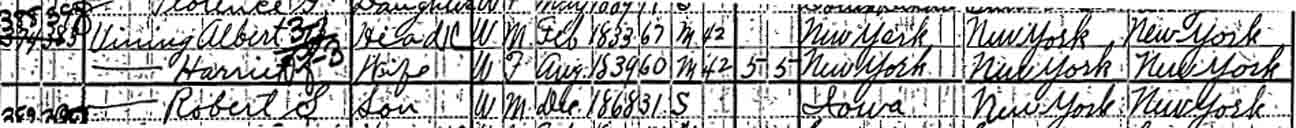 Florence Daughter W F May S
Vining Albert Head W M Feb 1833 67 M 42 New York New York New York
— Harriet Wife W F Aug 1839 60 M 42 5 5 New York New York New York
— Robert S Son W M Dec 1868 31 S Iowa New York New York